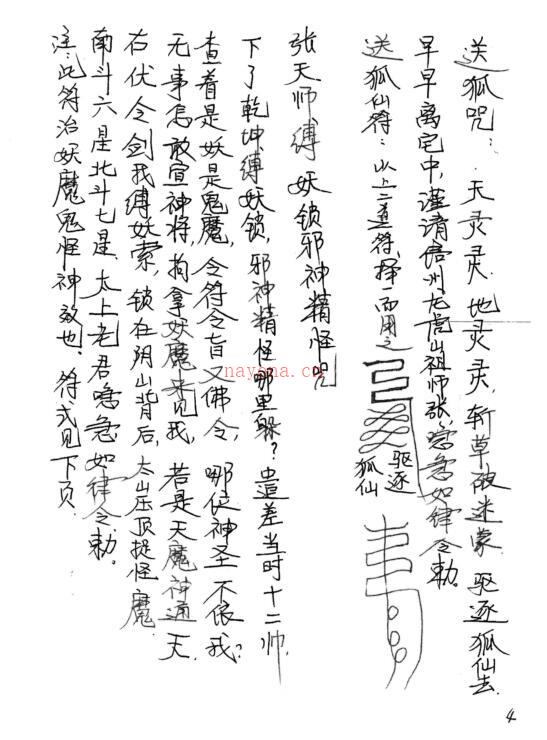 送狐咒：天灵灵，地灵灵，斩草破迷蒙，驱逐狐仙去，
早早离宅中，谨请信州龙虎山祖师张，嗯急如律令敕。
送狐仙符：以上二道符择一而用之
驱逐
狐仙
张天师缚妖锁邪神精怪咒
下了乾坤缚妖锁，邪神精怪哪里躲？出遣差当时十二帅，
查看是妖是鬼魔，令符令旨又佛令，哪位神圣不依我？
无事怎敢宣神将，拘拿妖魔来见我，若是天魔神通天，
右伏令剑我缚妖索，锁在阴山背后，太山压顶捉怪魔，
南斗六星北斗七星，太上老君嗯急如律令敕。
注：此符治妖魔鬼怪神效也。符式见下页。
nayona.cn
4